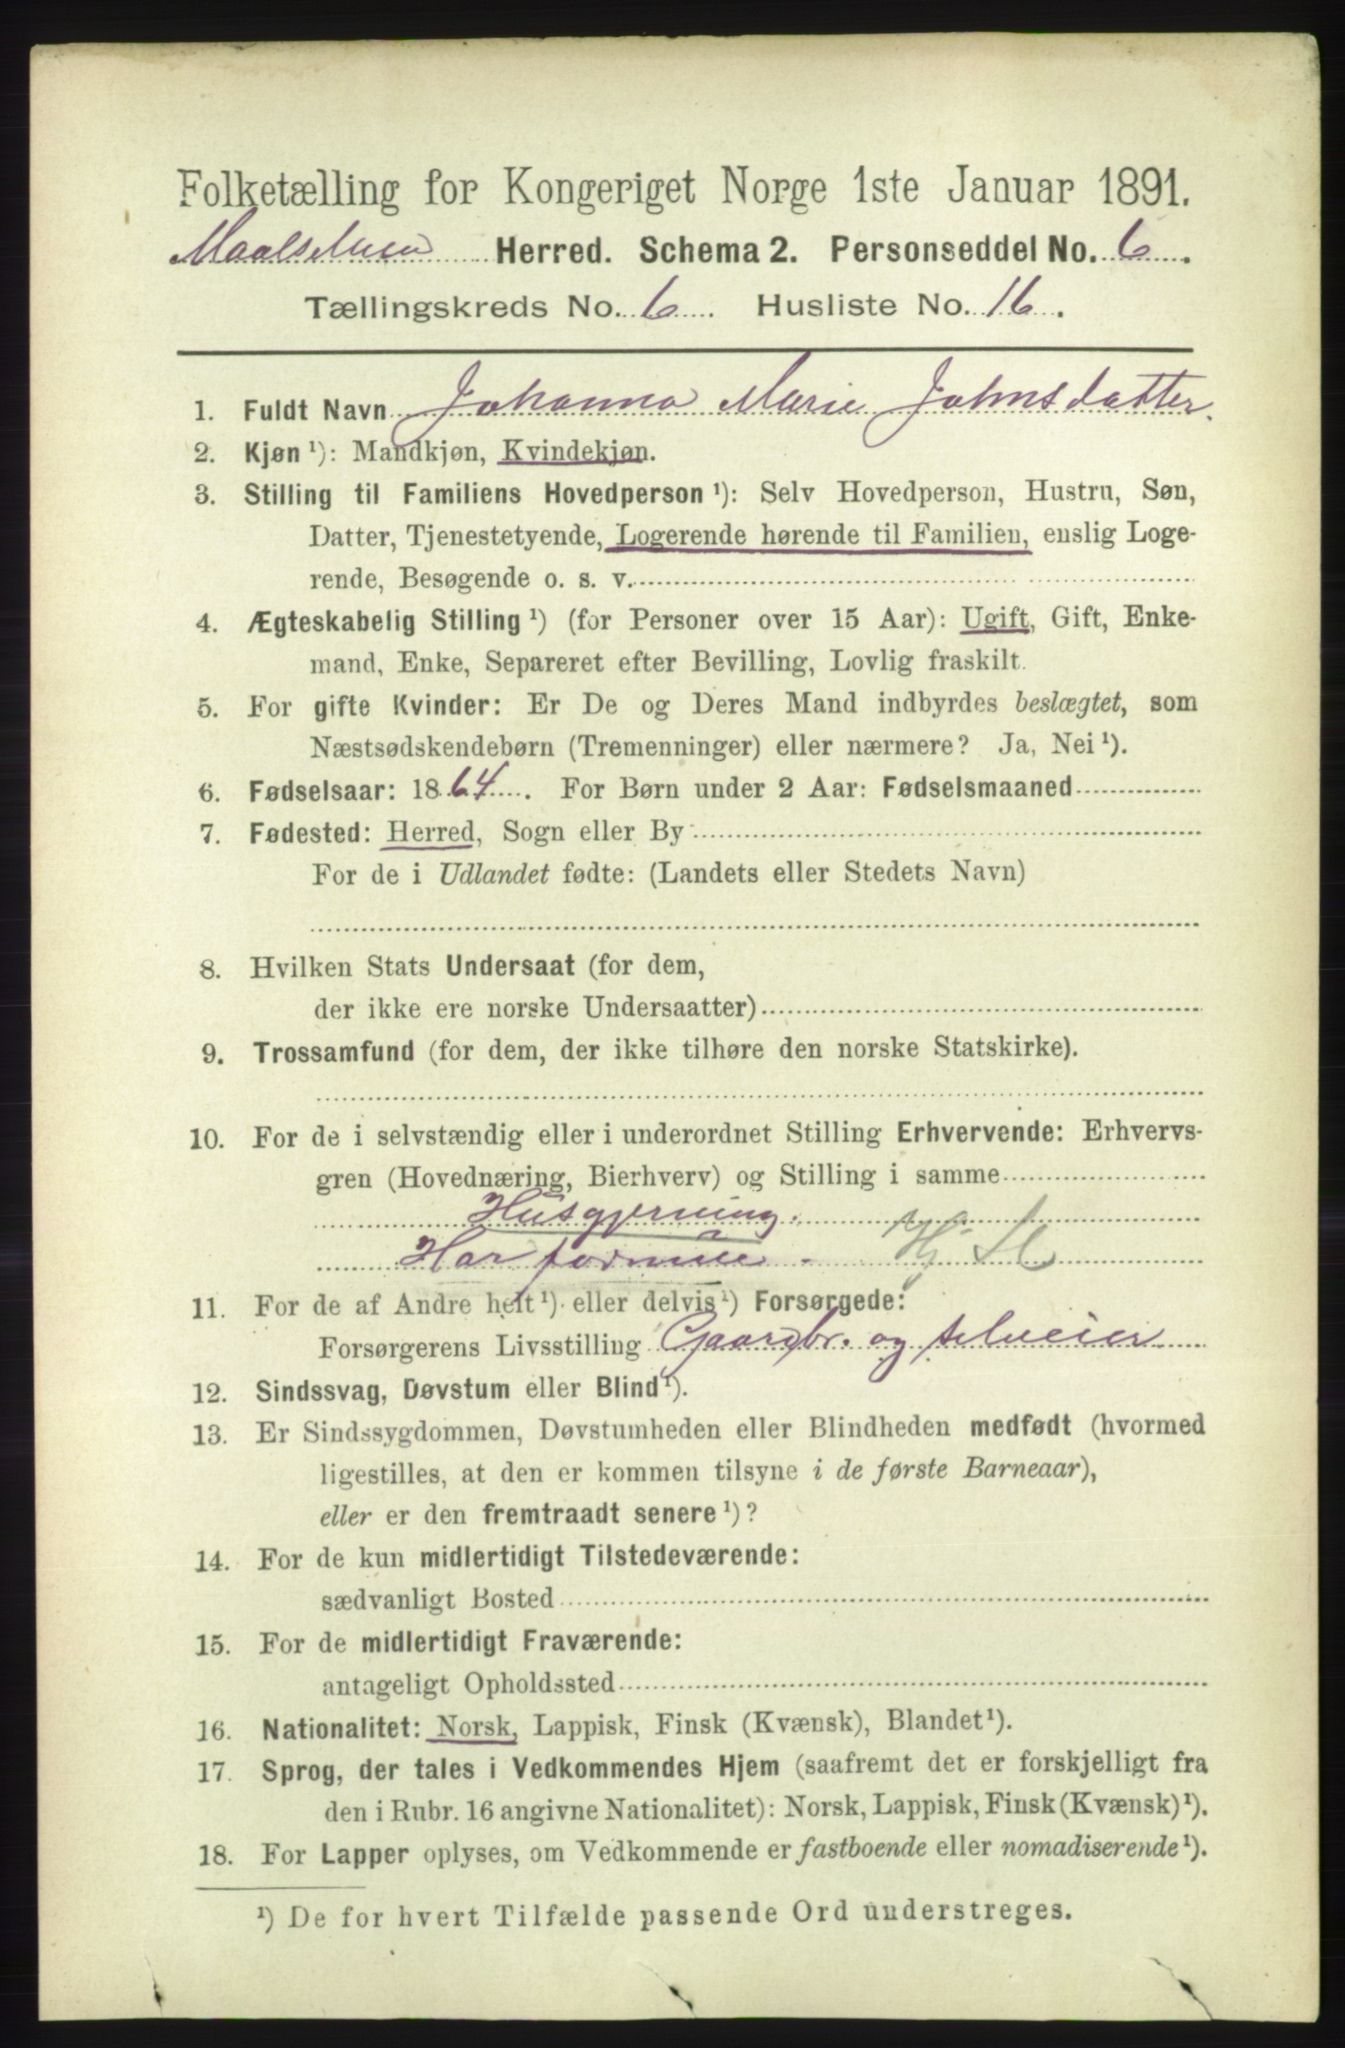 Folketælling for Kongeriget Norge 1ste Januar 1891.
Maalselven Herred. Schema 2. Personseddel No. 6.
Tællingskreds No. 6. Husliste No. 16.
1. Fuldt Navn Johanna Marie Johnsdatter.
2. Kjøn ¹): Mandkjøn, Kvindekjøn.
3. Stilling til Familiens Hovedperson ¹): Selv Hovedperson, Hustru, Søn,
Datter, Tjenestetyende, Logerende hørende til Familien, enslig Loge-
rende, Besøgende o. s. v.
4. Ægteskabelig Stilling ¹) (for Personer over 15 Aar): Ugift, Gift, Enke-
mand, Enke, Separeret efter Bevilling, Lovlig fraskilt.
5. For gifte Kvinder: Er De og Deres Mand indbyrdes beslægtet, som
Næstsødskendebørn (Tremenninger) eller nærmere? Ja, Nei ¹).
6. Fødselsaar: 1864. For Børn under 2 Aar: Fødselsmaaned
7. Fødested: Herred, Sogn eller By
For de i Udlandet fødte: (Landets eller Stedets Navn)
8. Hvilken Stats Undersaat (for dem,
der ikke ere norske Undersaatter)
9. Trossamfund (for dem, der ikke tilhøre den norske Statskirke).
10. For de i selvstændig eller i underordnet Stilling Erhvervende: Erhvervs-
gren (Hovednæring, Bierhverv) og Stilling i samme
Husgjerning.
Har formue.
11. For de af Andre helt ¹) eller delvis ¹) Forsørgede:
Forsørgerens Livsstilling Gaardbr. og selveier
12. Sindssvag, Døvstum eller Blind ¹).
13. Er Sindssygdommen, Døvstumheden eller Blindheden medfødt (hvormed
ligestilles, at den er kommen tilsyne i de første Barneaar),
eller er den fremtraadt senere ¹)?
14. For de kun midlertidigt Tilstedeværende:
sædvanligt Bosted
15. For de midlertidigt Fraværende:
antageligt Opholdssted
16. Nationalitet: Norsk, Lappisk, Finsk (Kvænsk), Blandet ¹).
17. Sprog, der tales i Vedkommendes Hjem (saafremt det er forskjelligt fra
den i Rubr. 16 angivne Nationalitet): Norsk, Lappisk, Finsk (Kvænsk) ¹).
18. For Lapper oplyses, om Vedkommende er fastboende eller nomadiserende ¹).
¹) De for hvert Tilfælde passende Ord understreges.